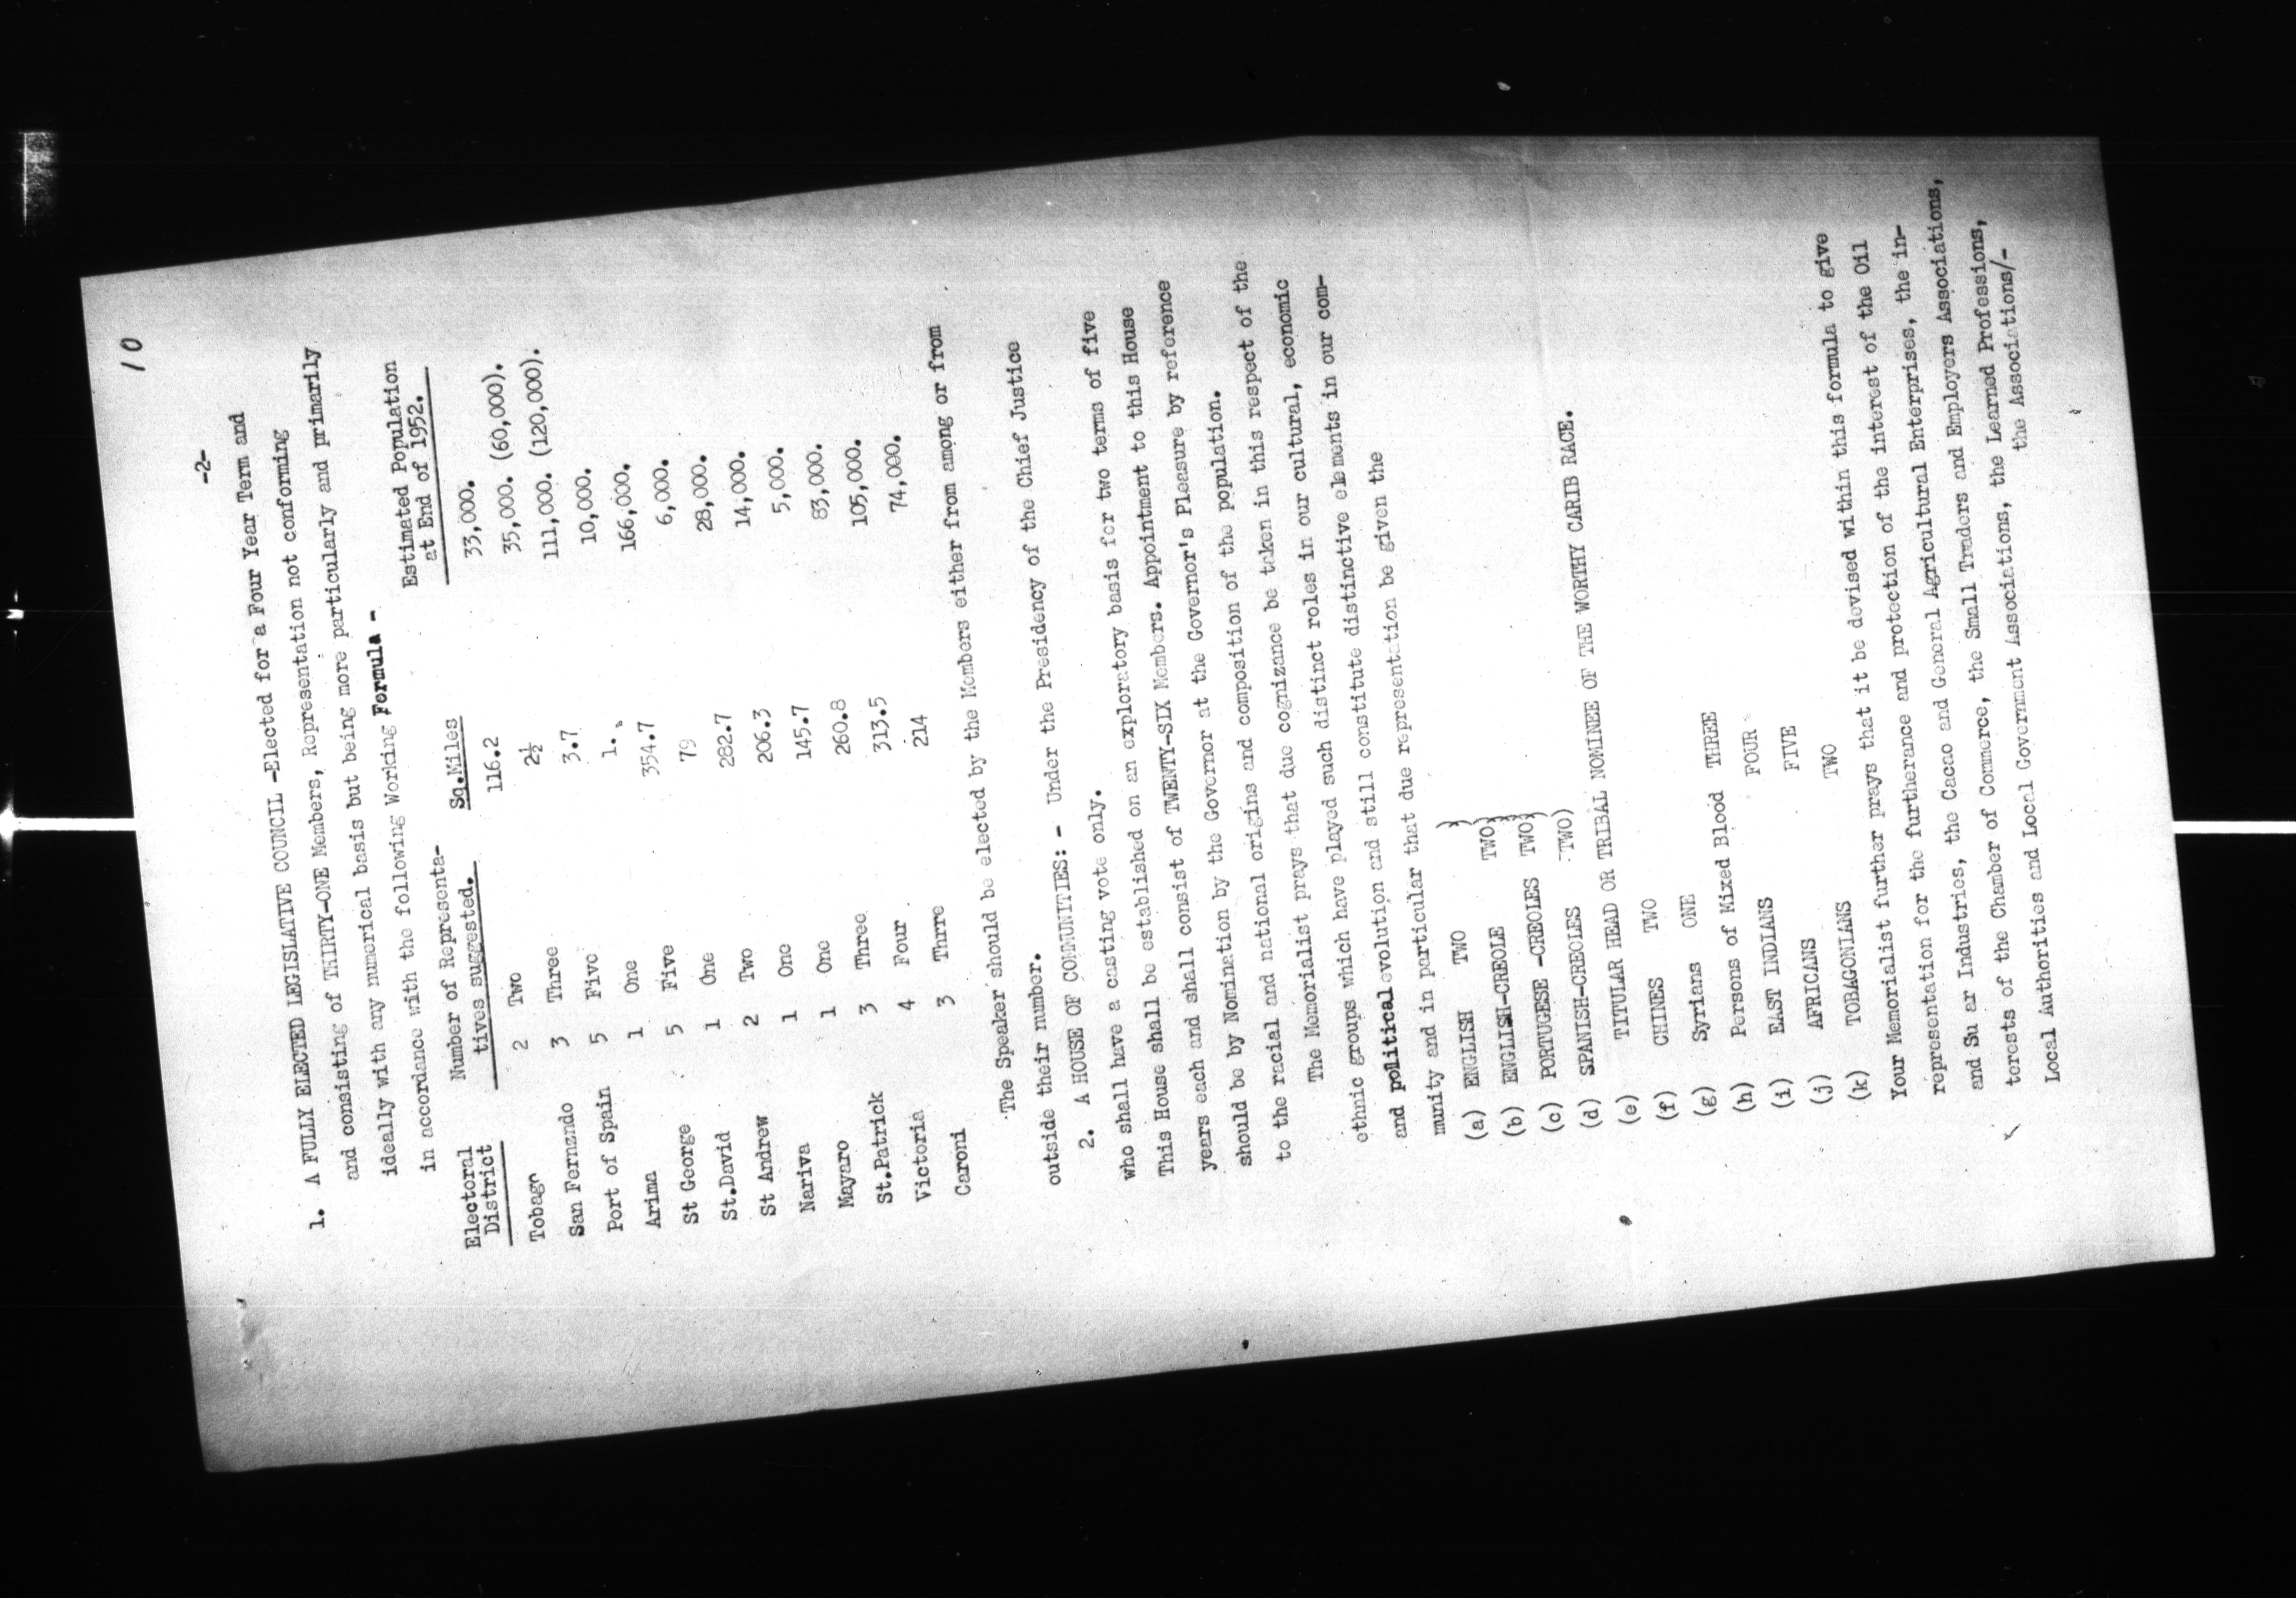 10
-2-
1. A FULLY ELECTED LEGISLATIVE COUNCIL -Elected for a Four Year Term and
and consisting of THIRTY-ONE Members, Representation not conforming
ideally with any numerical basis but being more particularly and primarily
in accordance with the following Working Formula -
Electoral District Number of Representa- tives suggested. Sq.Miles Estimated Population at End of 1952.
Tobago 2 Two 116.2 33,000.
San Fernzndo 3 Three 2½ 35,000. (60,000).
Port of Spain 5 Five 3.7 111,000. (120,000).
Arima 1 One 1. 10,000.
St George 5 Five 354.7 166,000.
St.David 1 One 79 6,000.
St Andrew 2 Two 282.7 28,000.
Nariva 1 One 206.3 14,000.
Mayaro 1 One 145.7 5,000.
St.Patrick 3 Three 260.8 83,000.
Victoria 4 Four 313.5 105,000.
Caroni 3 Thrre 214 74,000.
The Speaker should be elected by the Members either from among or from
outside their number.
2. A HOUSE OF COMMUNITIES: - Under the Presidency of the Chief Justice
who shall have a casting vote only.
This House shall be established on an exploratory basis for two terms of five
years each and shall consist of TWENTY-SIX Members. Appointment to this House
should be by Nomination by the Governor at the Governor's Pleasure by reference
to the racial and national origins and composition of the population.
The Memorialist prays that due cognizance be taken in this respect of the
ethnic groups which have played such distinct roles in our cultural, economic
and political evolution and still constitute distinctive elements in our com-
munity and in particular that due representation be given the
(a) ENGLISH TWO )
(b) ENGLISH-CREOLE TWO)
(c) PORTUGESE -CREOLES TWO)
(d) SPANISH-CREOLES TWO)
(e) TITULAR HEAD OR TRIBAL NOMINEE OF THE WORTHY CARIB RACE.
(f) CHINES TWO
(g) Syrians ONE
(h) Persons of Mixed Blood THREE
(i) EAST INDIANS FOUR
(j) AFRICANS FIVE
(k) TOBAGONIANS TWO
Your Memorialist further prays that it be devised within this formula to give
representation for the furtherance and protection of the interest of the Oil
and Su ar Industries, the Cacao and General Agricultural Enterprises, the in-
terests of the Chamber of Commerce, the Small Traders and Employers Associations,
Local Authorities and Local Government Associations, the Learned Professions,
the Associations/-